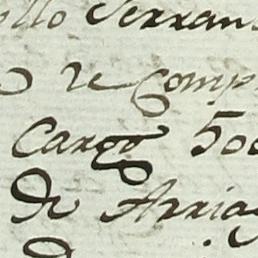 illo Serran
o se comp
Cargo 500
de Arriag